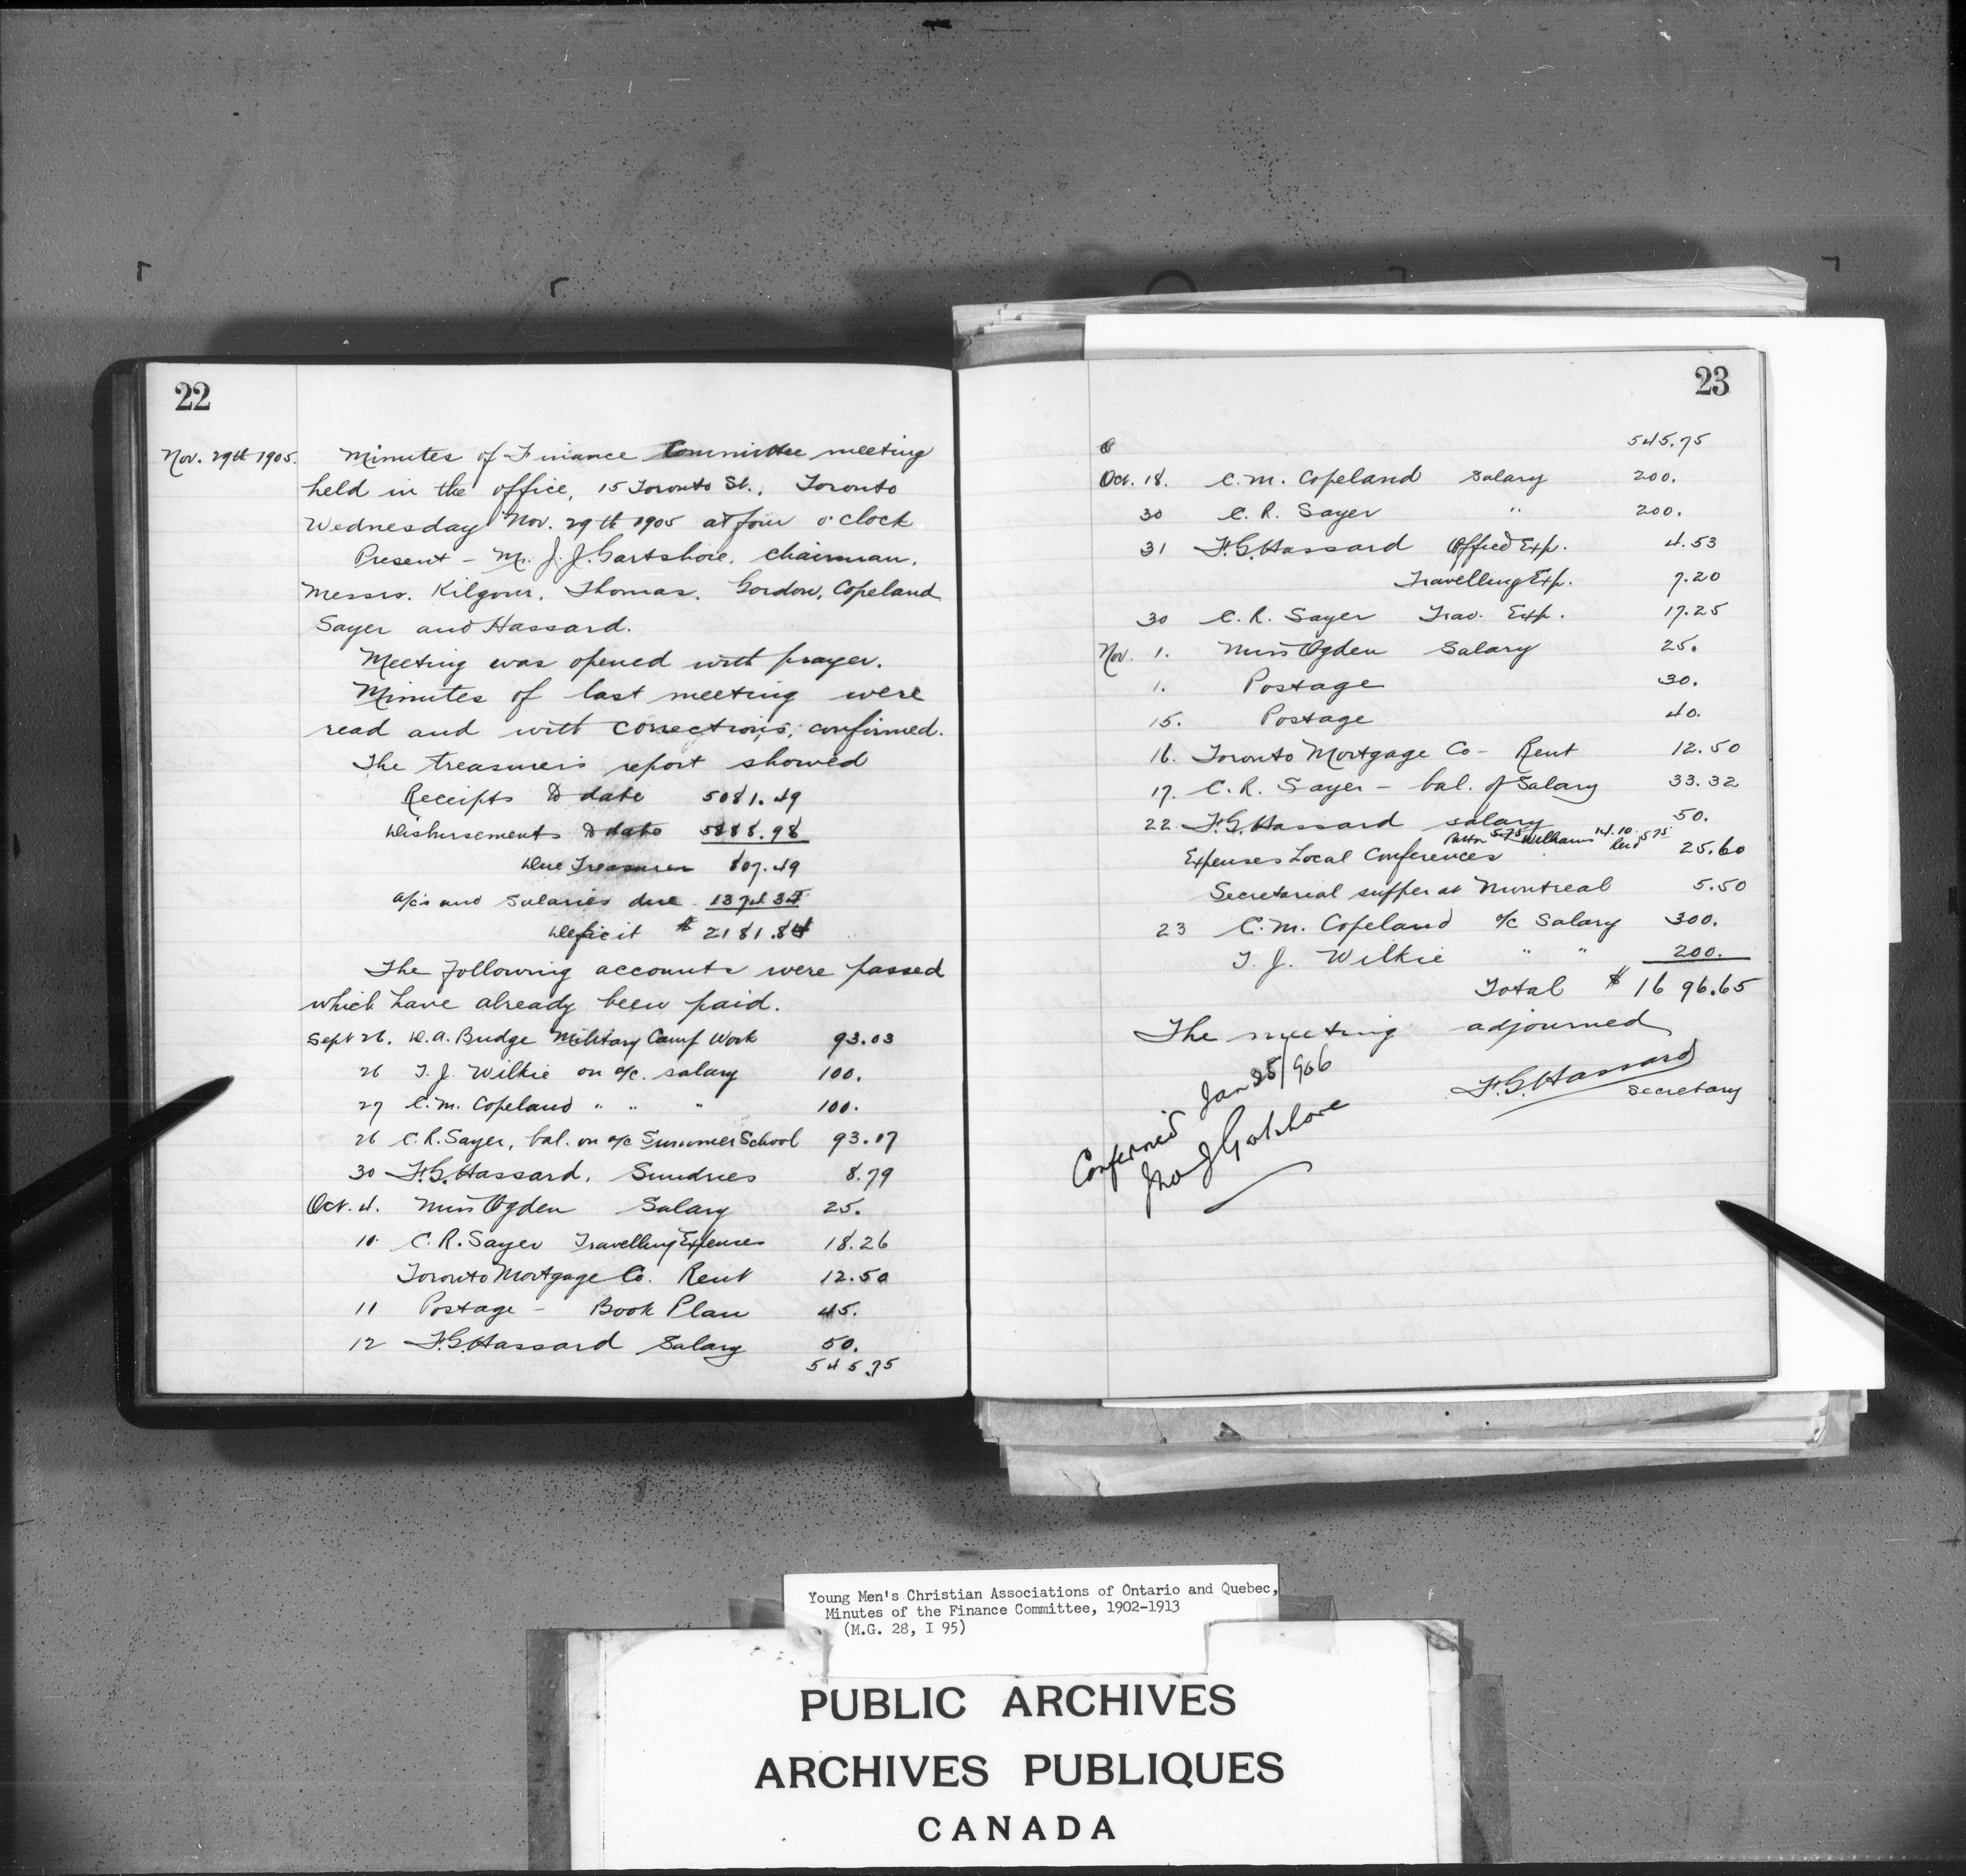 22
Nov. 29th 1905. Minutes of Finance Committee meeting
held in the office, 15 Toronto St., Toronto
Wednesday Nov. 29th 1905 at four o'clock
Present - Mr. J. J. Gartshore, chairman,
Messrs. Kilgour, Thomas, Gordon, Copeland
Sayer and Hassard.
Meeting was opened with prayer.
Minutes of last meeting were
read and with corrections, confirmed.
The treasurer's report showed
Receipts to date 5081.49
Disbursements to date 5888.98
Due Treasurer 807.49
a/cs and Salaries due 1374.35
Deficit $ 2181.84
The following accounts were passed
which have already been paid.
Sept 26. D.A. Budge Military Camp Work 93.03
26 T. J. Wilkie on a/c. salary 100.
27 C.M. Copeland " " " 100.
26 C.R. Sayer, bal. on a/c Summer School 93.17
30 F.G. Hassard, Sundries 8.79
Oct. 4. Miss Ogden Salary 25.
10. C.R. Sayer Travelling Expenses 18.26
Toronto Mortgage Co. Rent 12.50
11 Postage - Book Plan 45.
12 F.G. Hassard Salary 50.
545.75
23
545.75
Oct. 18. C.M. Copeland Salary 200.
30 C.R. Sayer " 200.
31 F.G. Hassard Office Exp. 4.53
Travelling Exp. 7.20
30 C.R. Sayer Trav. Exp. 17.25
Nov. 1. Miss Ogden Salary 25.
1. Postage 30.
15. Postage 40.
16. Toronto Mortgage Co - Rent 12.50
17. C.R. Sayer - bal. of Salary 33.32
22. F.G. Hassard salary 50.
5.75 Williams 14.10 Reid 5.75
Expenses Local Conferences 25.60
Secretarial supper at Montreal 5.50
23 C.M. Copeland a/c Salary 300.
T. J. Wilkie " " 200.
Total $ 1696.65
The meeting adjourned
F.G. Hassard
Secretary
Confirmed Jan 25/906
Jno J Gartshore
Young Men's Christian Associations of Ontario and Quebec,
Minutes of the Finance Committee, 1902-1913
(M.G. 28, I 95)
PUBLIC ARCHIVES
ARCHIVES PUBLIQUES
CANADA